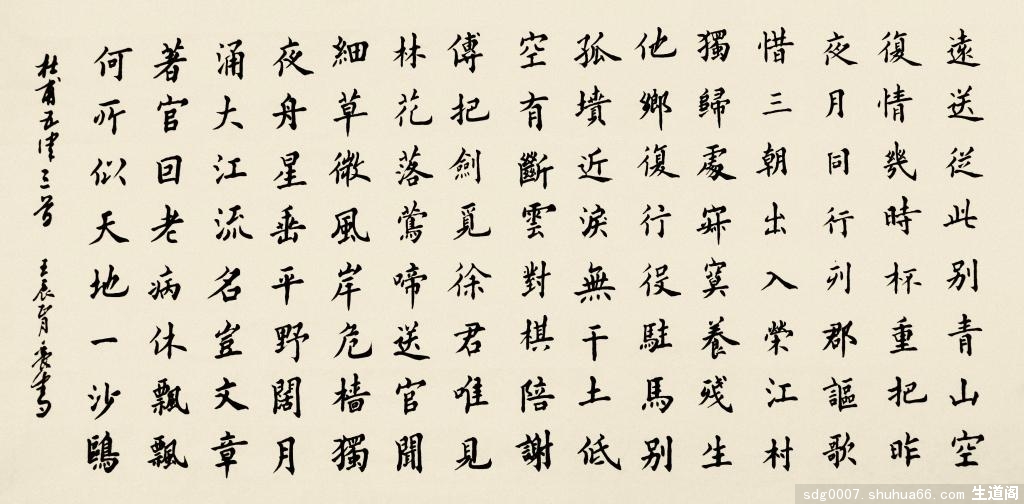 遠送從此别青山空
復情幾時杯重把昨
夜月同行列郡謳歌
惜三朝出入榮江村
獨歸處寂寞養殘生
他鄉復行役駐馬别
孤墳近淚無干土低
空有斷雲對棋陪謝
傅把劍覓徐君唯見
林花落鶯啼送官聞
細草微風岸危檣獨
夜舟星垂平野闊月
涌大江流名豈文章
著官回老病休飄飄
何所似天地一沙鷗
杜甫五律三首 壬辰 月 書
sdg0007.shuhua66.com 生道阁